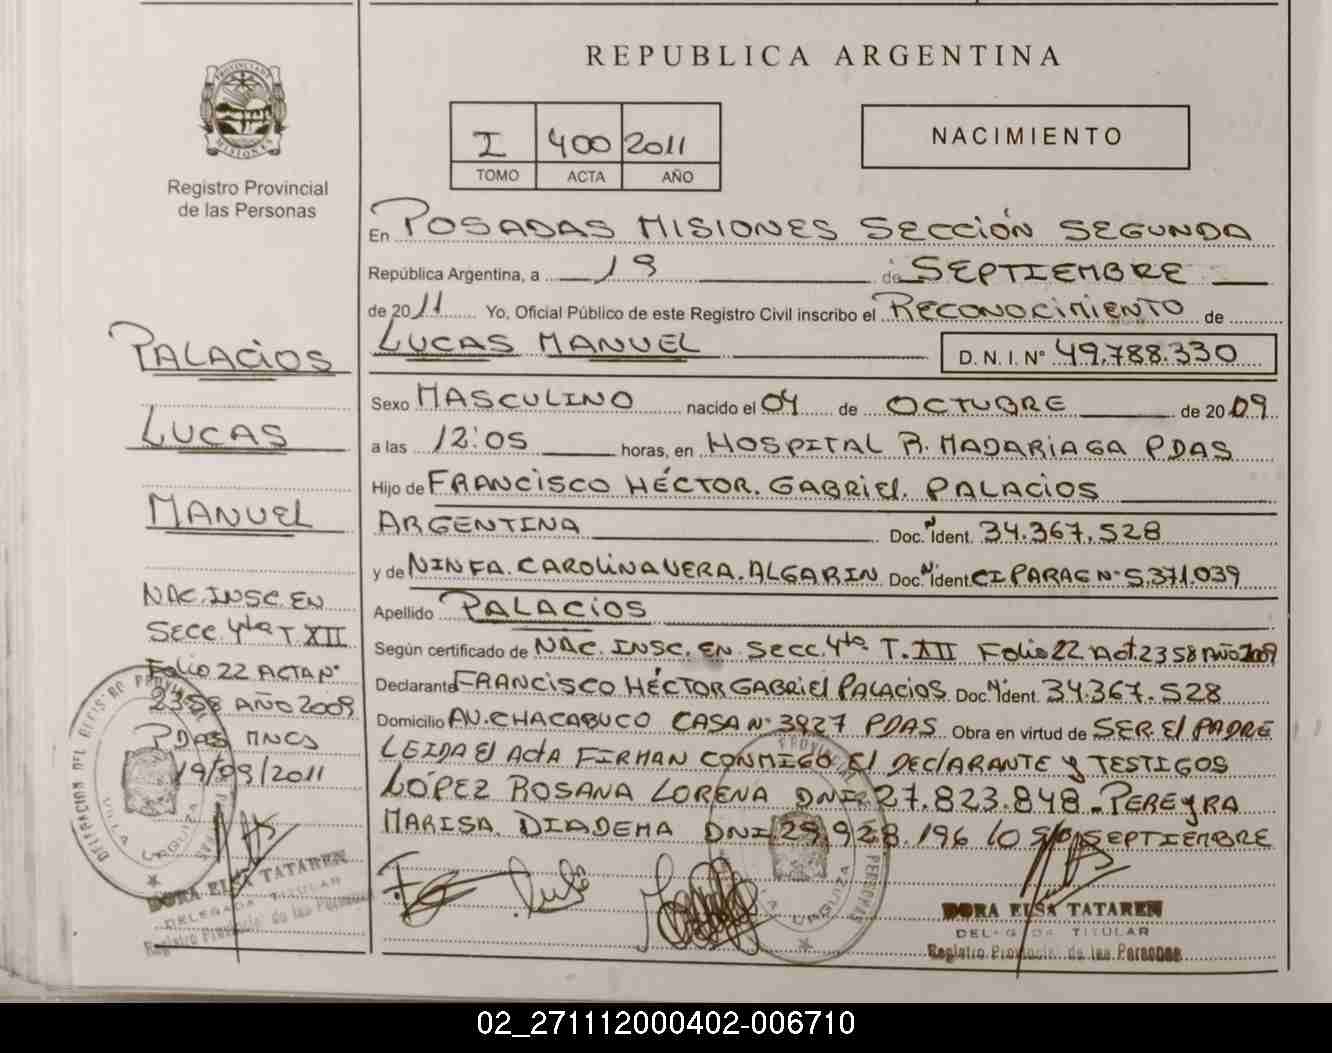 REPUBLICA ARGENTINA
PROVINCIA DE
MISIONES
Registro Provincial
de las Personas
I 400 2011
TOMO ACTA AÑO
NACIMIENTO
En POSADAS MISIONES SECCIÓN SEGUNDA
República Argentina, a 19 de SEPTIEMBRE
de 2011 Yo, Oficial Público de este Registro Civil inscribo el RECONOCIMIENTO de
LUCAS MANUEL D.N.I. N° 49.788.330
Sexo MASCULINO nacido el 04 de OCTUBRE de 2009
a las 12:05 horas, en HOSPITAL R. MADARIAGA PDAS
Hijo de FRANCISCO HÉCTOR. GABRIEL. PALACIOS
ARGENTINA Doc. N° Ident. 34.367.528
y de NINFA. CAROLINA VERA. ALGARIN Doc. N° Ident. CI PARAG N° 5.371.039
Apellido PALACIOS
Según certificado de NAC. INSC. EN SECC. 4ta T. XII Folio 22 Act. 2358 Año 2009
Declarante FRANCISCO HÉCTOR GABRIEL PALACIOS Doc. N° Ident. 34.367.528
Domicilio AV. CHACABUCO CASA N° 3927 PDAS Obra en virtud de SER El PADRE
LEIDA El ACTA FIRMAN CONMIGO El DEClARANTE y TESTIGOS
LÓPEZ ROSANA LORENA DNI 27.823.848 - PEREYRA
MARISA DIADEMA DNI 29.928.196 SEPTIEMBRE
PALACIOS
LUCAS
MANUEL
NAC. INSC. EN
SECC. 4ta T XII
Folio 22 ACTA N°
2358 AÑO 2009
PDAS MNES
19/09/2011
DORA ELSA TATAREN
DELEGADA TITULAR
Registro Provincial de las Personas
DORA ELSA TATAREN
DELEGADA TITULAR
Registro Provincial de las Personas
02_271112000402-006710